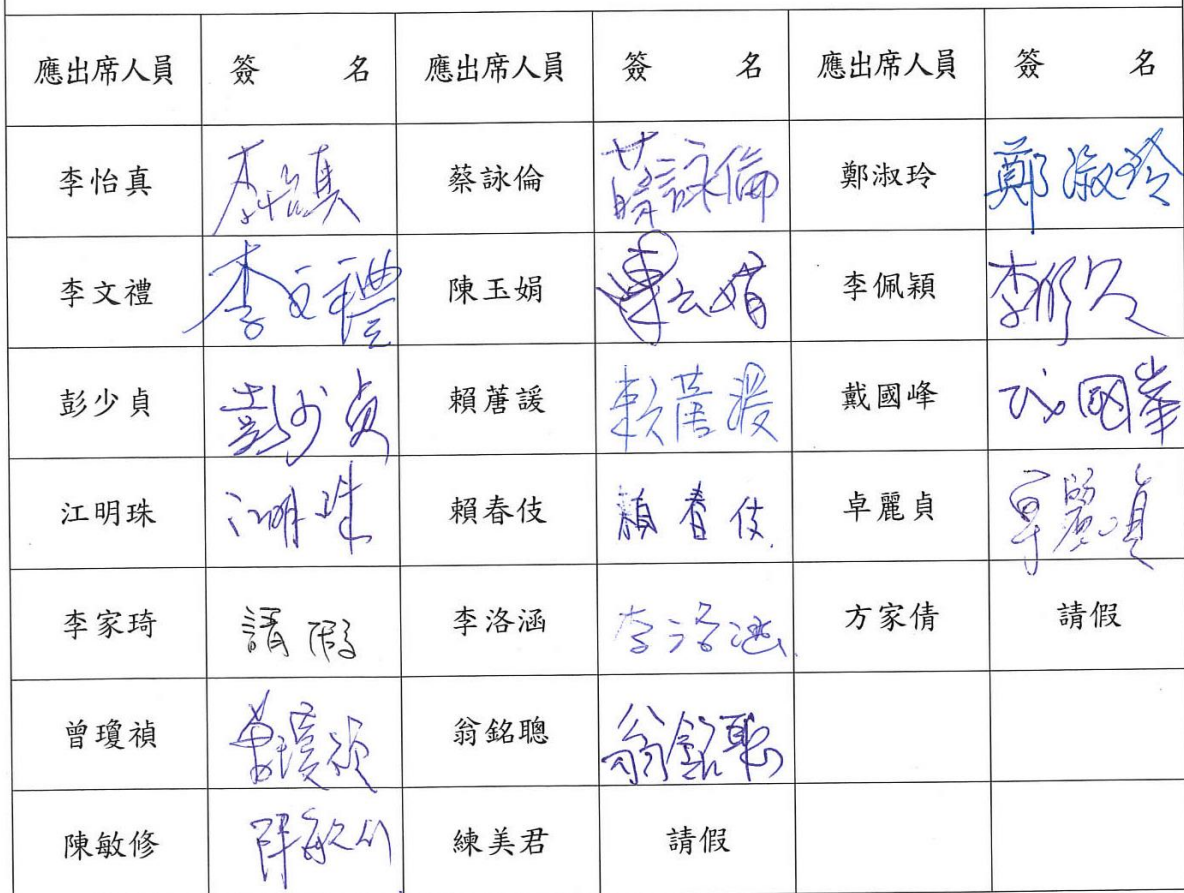 應出席人員 簽 名 應出席人員 簽 名 應出席人員 簽 名
李怡真 李怡真 蔡詠倫 蔡詠倫 鄭淑玲 鄭淑玲
李文禮 李文禮 陳玉娟 陳玉娟 李佩穎 李佩穎
彭少貞 彭少貞 賴蓎諼 賴蓎諼 戴國峰 戴國峯
江明珠 江明珠 賴春伎 賴春伎 卓麗貞 卓麗貞
李家琦 請假 李洛涵 李洛涵 方家倩 請假
曾瓊禎 曾瓊禎 翁銘聰 翁銘聰
陳敏修 陳敏修 練美君 請假